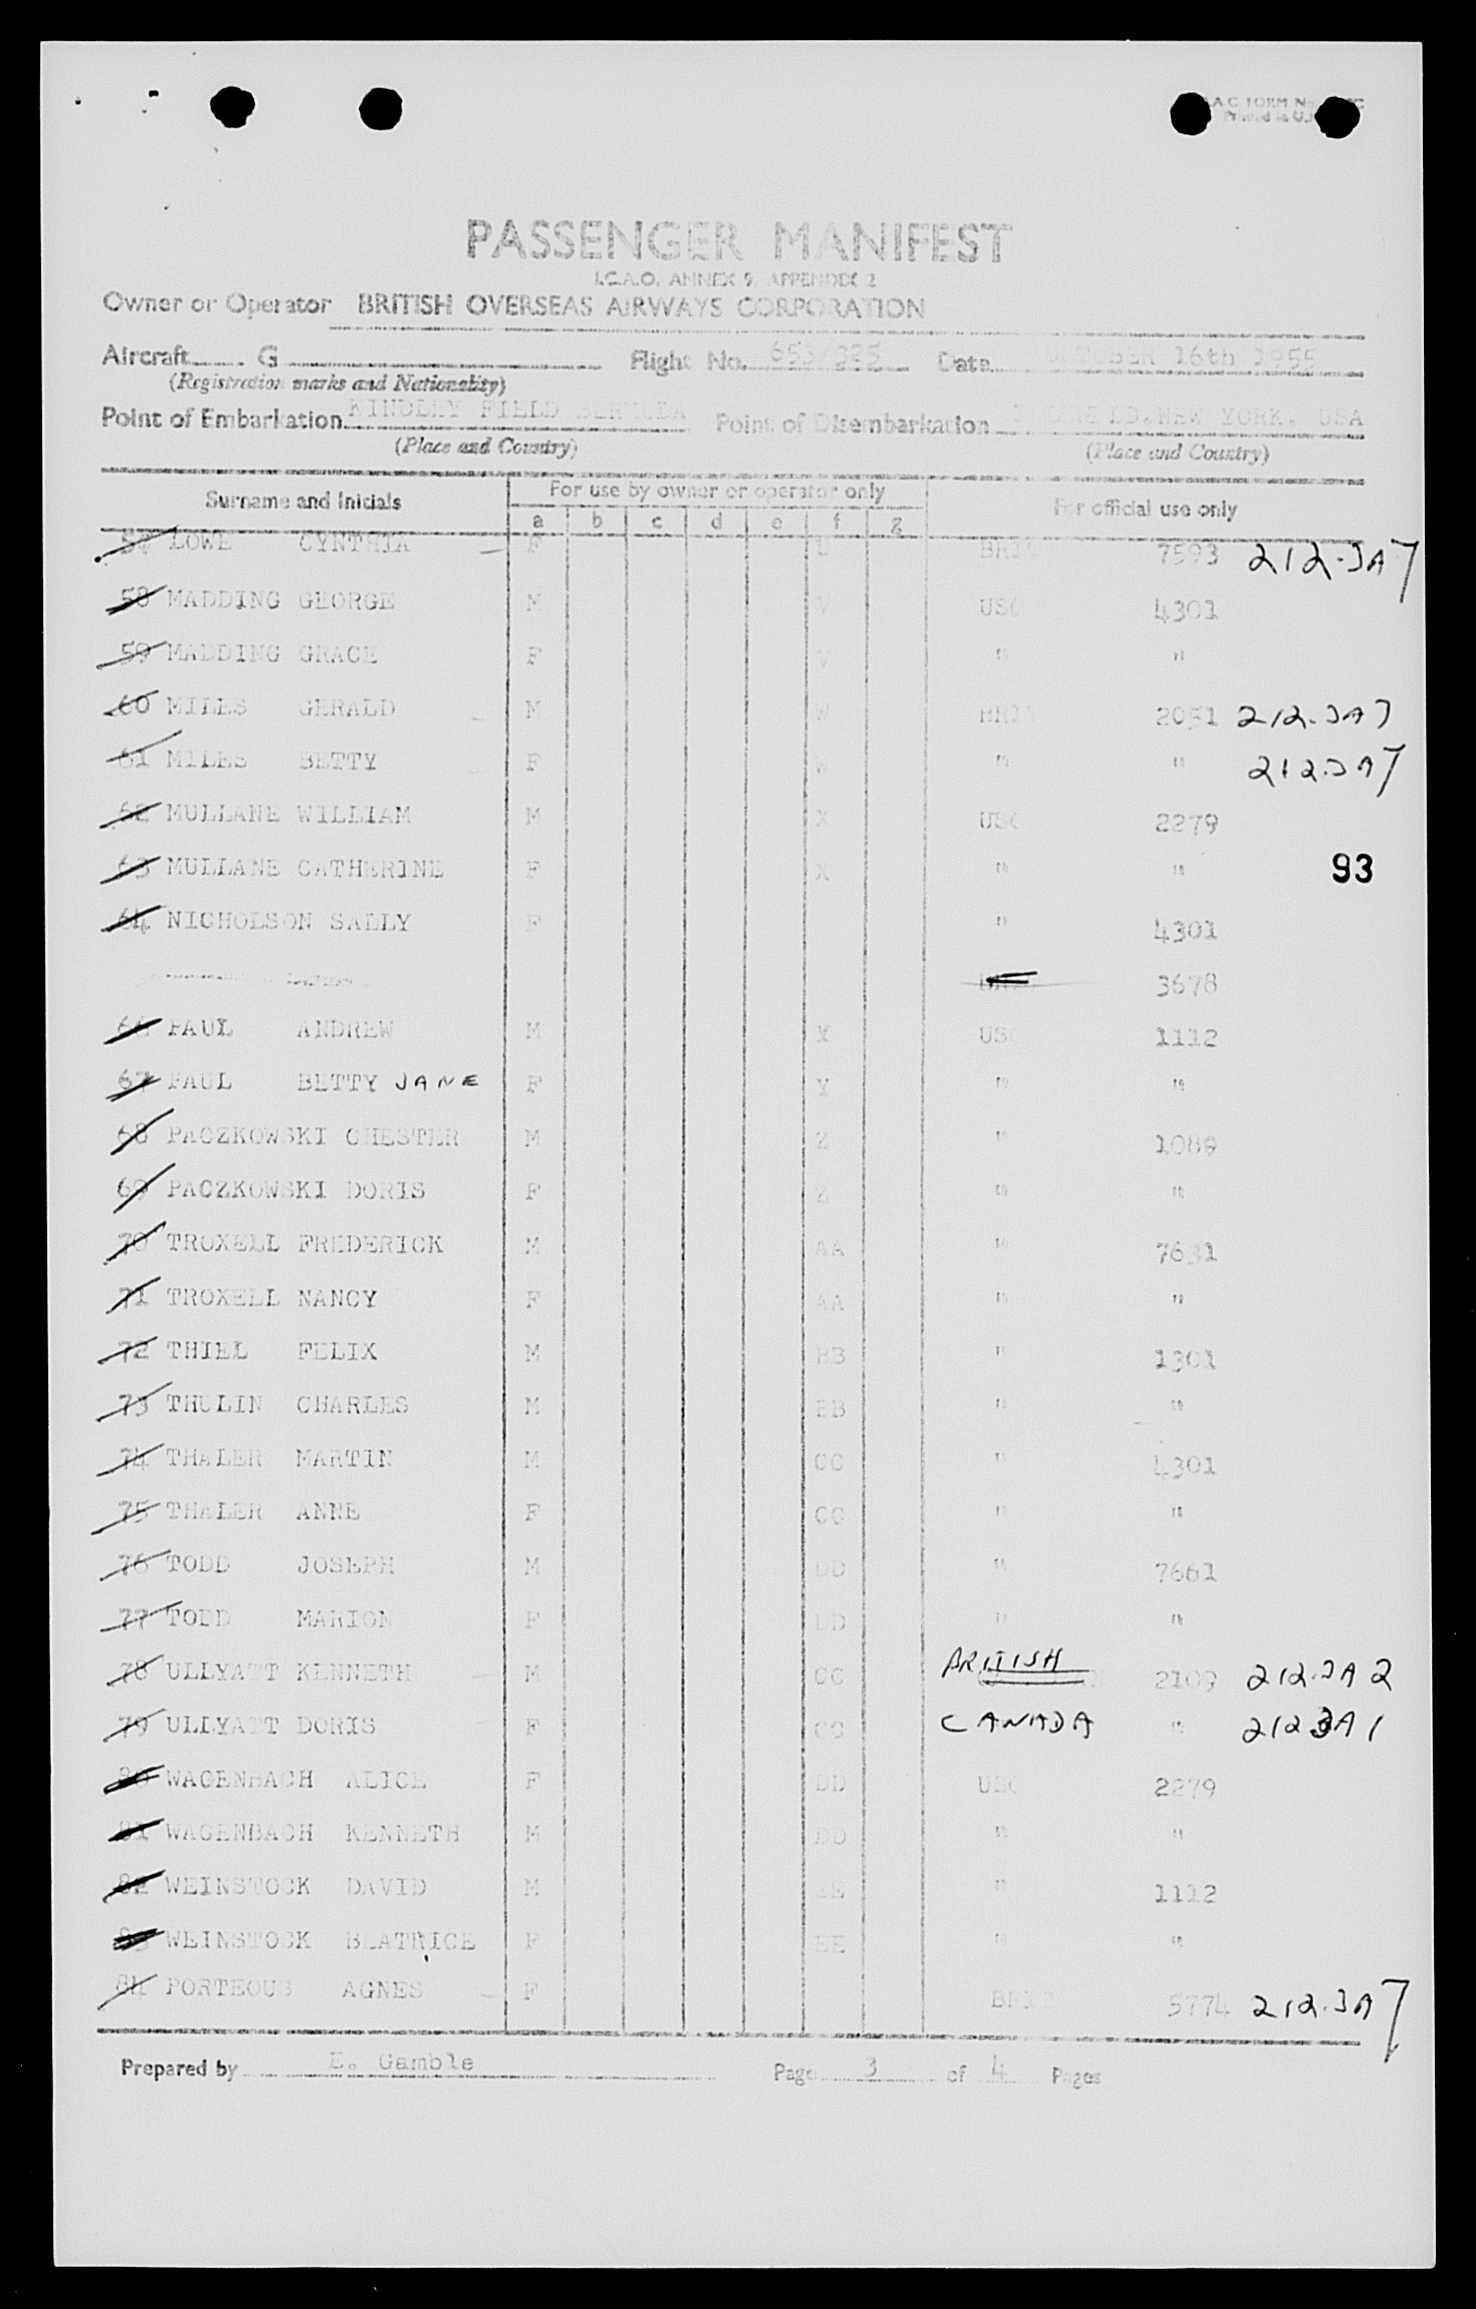 PASSENGER MANIFEST
I.C.A.O. ANNEX 9, APPENDIX 2
Owner or Operator BRITISH OVERSEAS AIRWAYS CORPORATION
Aircraft G Flight No. Date 16th 1955
(Registration marks and Nationality)
Point of Embarkation KINDLEY FIELD BERMUDA Point of Disembarkation NEW YORK, USA
(Place and Country) (Place and Country)
Surname and Initials For use by owner or operator only For official use only
a b c d e f g
57 LOWE CYNTHIA F U BRIT 7593 212.3A7
58 MADDING GEORGE M V USC 4301
59 MADDING GRACE F V " "
60 MILES GERALD M W BRIT 2051 212.3A7
61 MILES BETTY F W " " 212.3A7
62 MULLANE WILLIAM M X USC 2279
63 MULLANE CATHERINE F X " " 93
64 NICHOLSON SALLY F " 4301
3678
66 PAUL ANDREW M Y USC 1112
67 PAUL BETTY JANE F Y " "
68 PACZKOWSKI CHESTER M Z " 1089
69 PACZKOWSKI DORIS F Z " "
70 TROXELL FREDERICK M AA " 7631
71 TROXELL NANCY F AA " "
72 THIEL FELIX M BB " 1301
73 THULIN CHARLES M BB " "
74 THALER MARTIN M CC " 4301
75 THALER ANNE F CC " "
76 TODD JOSEPH M DD " 7661
77 TODD MARION F DD " "
78 ULLYATT KENNETH M CC BRITISH 2109 212.3A2
79 ULLYATT DORIS F CC CANADA " 212 3A1
80 WAGENBACH ALICE F DD USC 2279
81 WAGENBACH KENNETH M DD " "
82 WEINSTOCK DAVID M EE " 1112
83 WEINSTOCK BEATRICE F EE " "
84 PORTEOUS AGNES F BRIT 5774 212.3A7
Prepared by E. Gamble Page 3 of 4 Pages